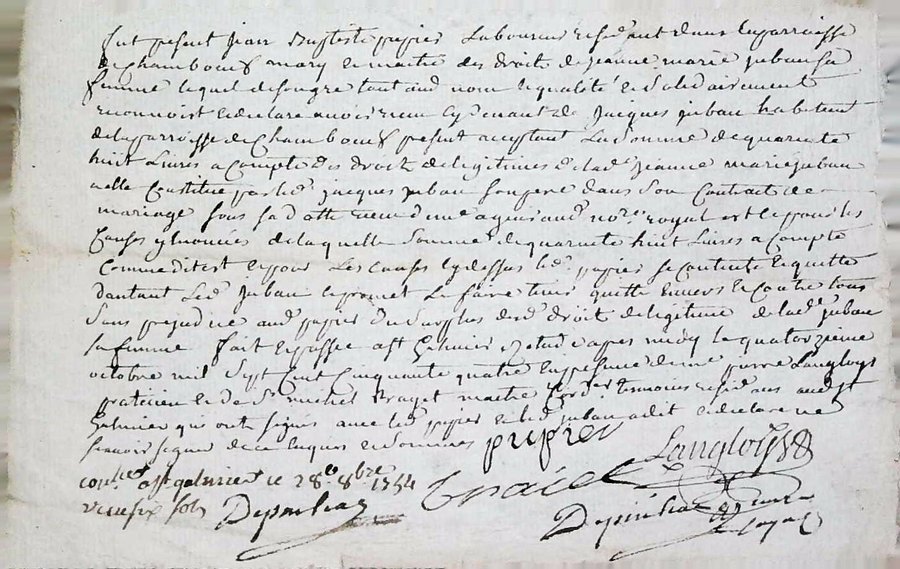 fut present jean Baptiste papier Laboureur residant dans la parroisse
de chamboeuf mary et maitre des droits de jeanne marie juban sa
femme lequel de son gre tout aud nom et qualité et solidairement
reconnoist et declare avoir receu cy devant de jacques juban habitant
de la parroisse de Chamboeuf present acceptant La somme de quarante
huit Livres a compte des droits de legitimes de lad.e jeanne marie juban
a elle Constitué par led.t jacques juban son pere dans son Contract de
mariage sous sa datte receu de me aud no.re royal et pour les
Causes enoncées de laquelle Somme de quarante huit Livres a Compte
Comme dit est et pour Les causes cy dessus led.t papier se contente et quitte
dautant Led.t juban et promet Le faire tenir quitte envers et contre tous
Sans prejudice aud papier du Surplus desd.s droits de legitime de lad.e juban
sa femme fait et passé a st Galmier Estude apres midy le quatorzieme
octobre mil Sept cent cinquante quatre en presence de me pierre Langloys
praticien et de Sr michel Brayet maitre Cord.er temoins residans aud st
Galmier qui ont signés avec led.t papier et led.t juban a dit et declare ne
scavoir signer de ce enquis et sommés papier Langloys
con.lé a st galmier ce 28.e 8bre 1754
Depinhac Depinhac
no.re royal